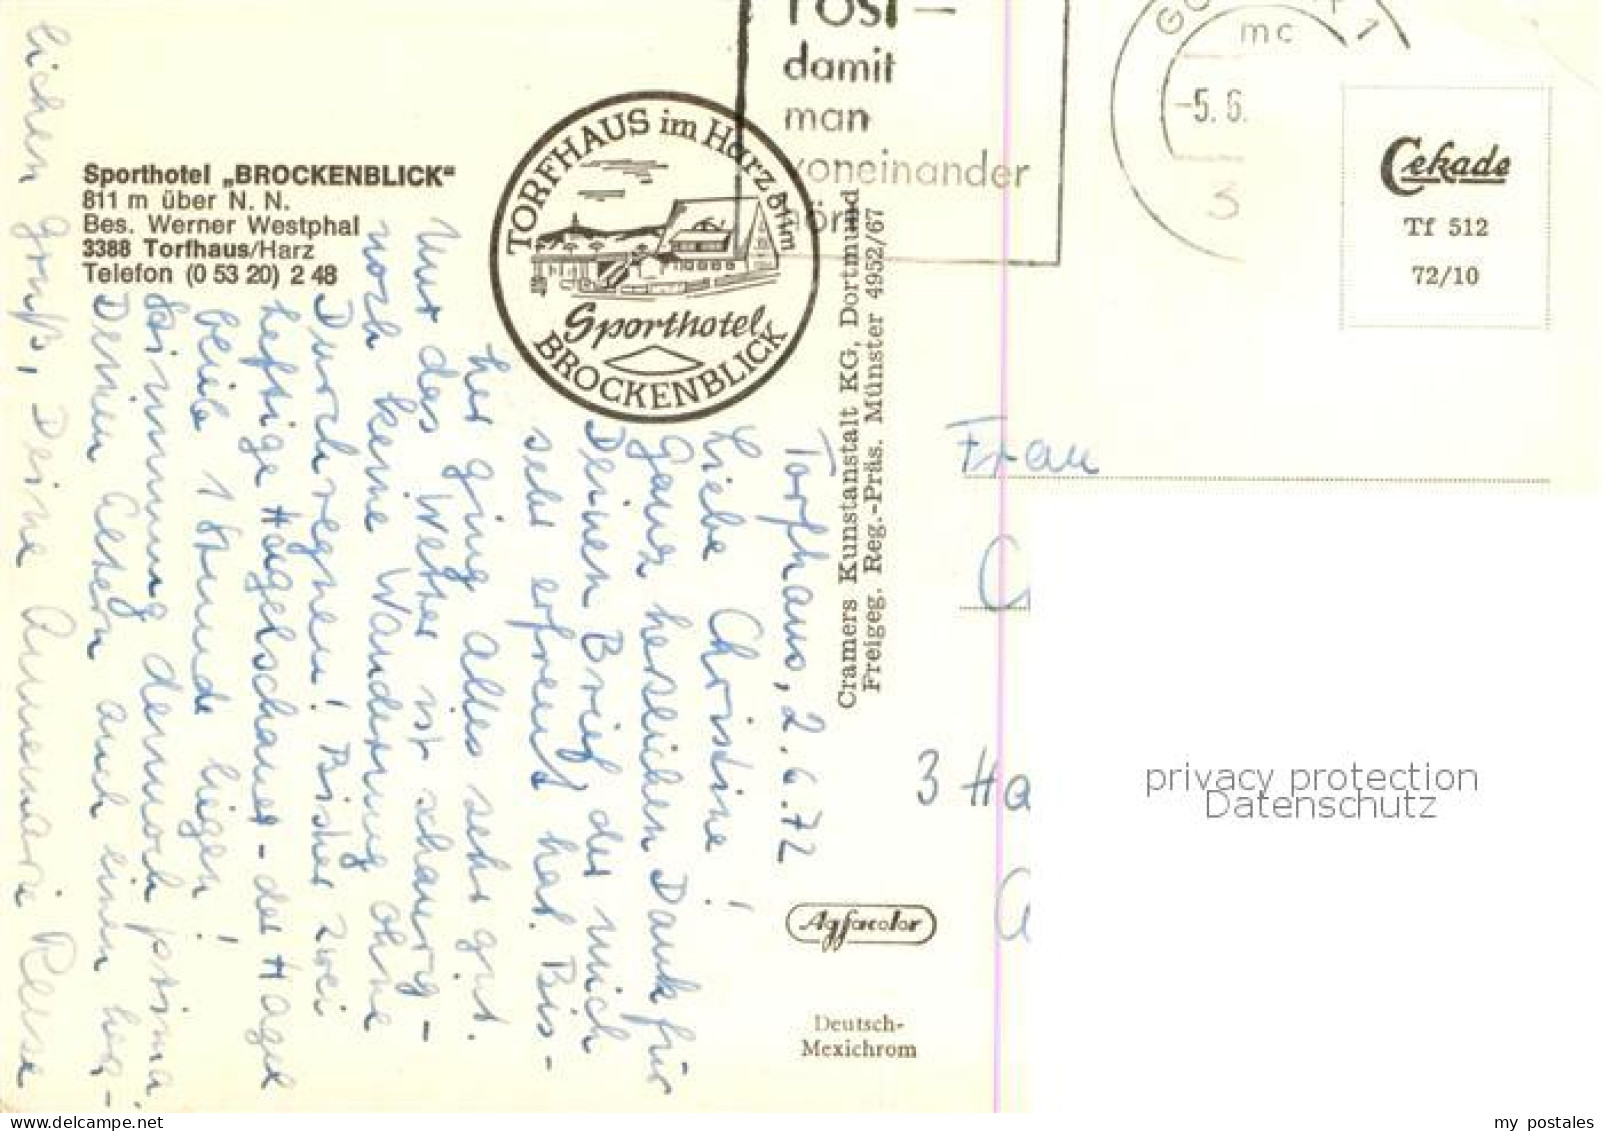 Sporthotel „BROCKENBLICK“
811 m über N. N.
Bes. Werner Westphal
3388 Torfhaus/Harz
Telefon (0 53 20) 2 48
TORFHAUS im Harz 811m
Sporthotel
BROCKENBLICK
Post –
damit
man
voneinander
hört
mc
-5. 6.
3
Cekade
Tf 512
72/10
Cramers Kunstanstalt KG, Dortmund
Freigeg. Reg.-Präs. Münster 4952/67
Torfhaus, 2.6.72
Liebe Christine!
Ganz herzlichen Dank für
Deinen Brief, der mich
sehr erfreut hat. Bis-
her ging alles sehr gut.
Nur das Wetter ist schaurig –
noch keine Wanderung ohne
Durchregnen! Bisher zwei
heftige Hagelschauer – der Hagel
blieb 1 Stunde liegen!
Stimmung dennoch prima.
Deinen Eltern auch einen herz-
lichen Gruß, Deine Annemarie
Frau
3 Ha
Agfacolor
Deutsch-
Mexichrom
privacy protection
Datenschutz
my postales